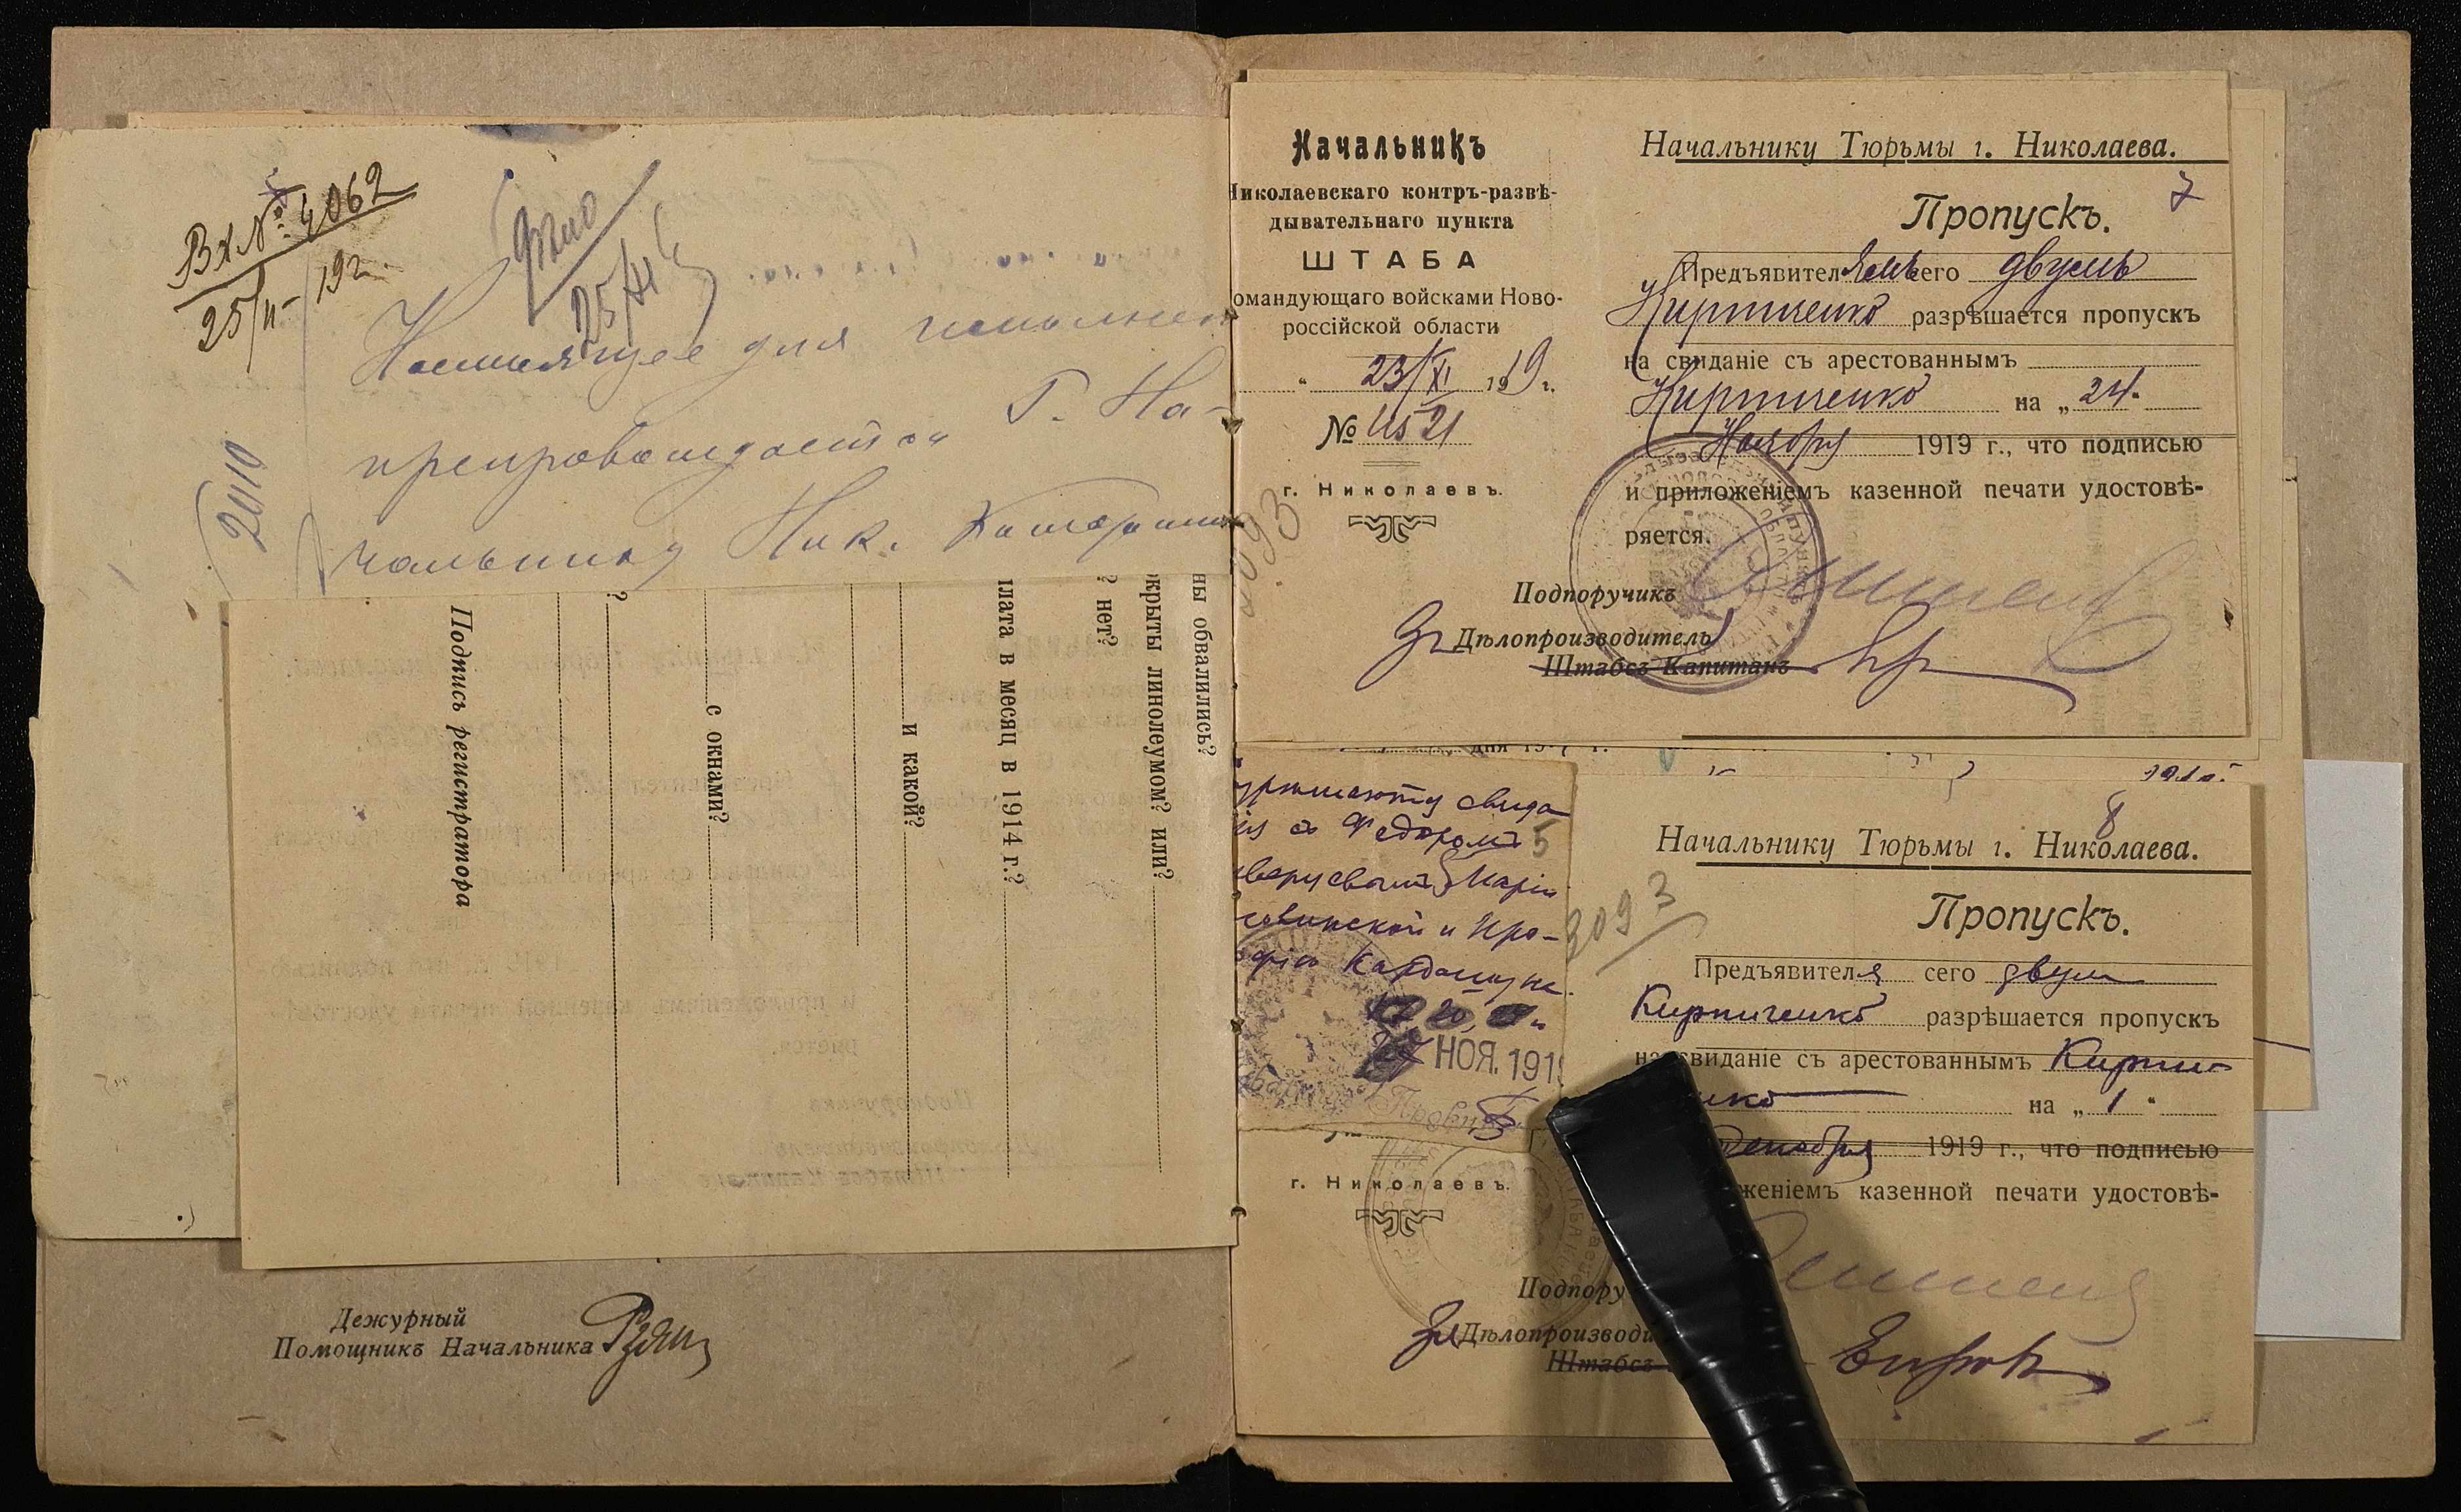 Вх № 4062
25/II 19 г.
дѣло
25/XI
2010
Настоящее для исполнен
препровождается Г. На-
чальнику Ник. Каторжн
ны обвалились?
крыты линолеумом? или?
? нет?
плата в месяц в 1914 г.?
и какой?
с окнами?
?
Подпись регистратора
Дежурный
Помощникъ Начальника
Начальникъ
Николаевскаго контръ-развѣ-
дывательнаго пункта
ШТАБА
омандующаго войсками Ново-
россійской области
" 23/XI 1919 г.
№ 4521
г. Николаевъ.
Начальнику Тюрьмы г. Николаева.
7
Пропускъ.
Предъявителямъ сего двумъ
Кирпиченко разрѣшается пропускъ
на свиданіе съ арестованнымъ
Кирпиченко на „ 24 "
Ноября 1919 г., что подписью
и приложеніемъ казенной печати удостовѣ-
ряется.
Подпоручикъ
За Дѣлопроизводитель
Штабсъ-Капитанъ
дня 19
свида
ія съ Федоромъ 5
Марія
и Про-
20,
НОЯ. 191
г. Николаевъ.
3093
8
Начальнику Тюрьмы г. Николаева.
Пропускъ.
Предъявителя сего двум
Кирпиченко разрѣшается пропускъ
на свиданіе съ арестованнымъ Кирпи-
нко на „ 1 "
Декабря 1919 г., что подписью
женіемъ казенной печати удостовѣ-
Подпору
За Дѣлопроизводи
Штабсъ